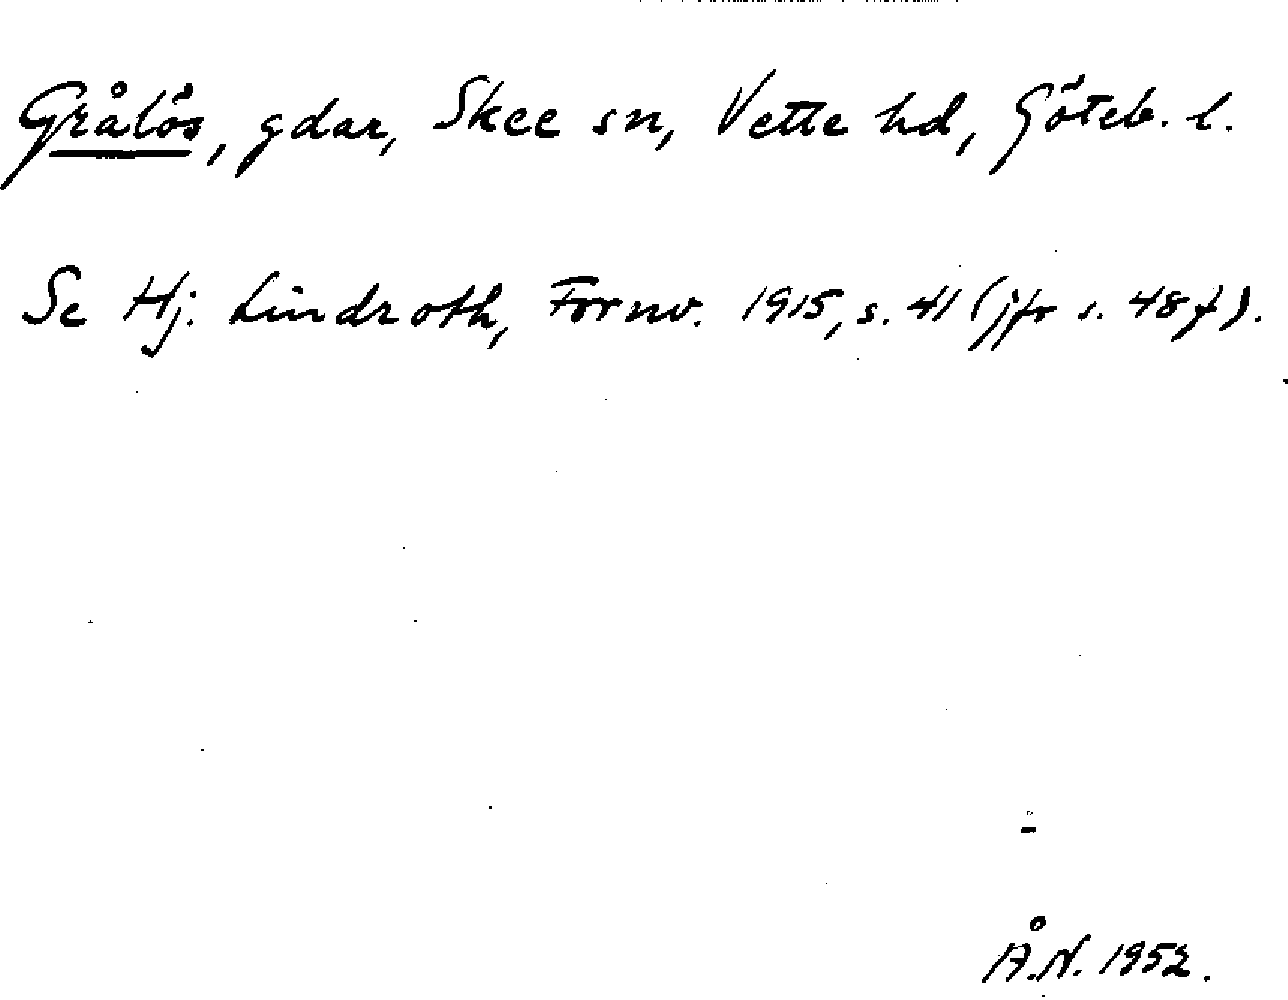 Grålös, gdar, Skee sn, Vette hd, Göteb. l.
Se Hj. Lindroth, Fornv. 1915, s. 41 (jfr s. 48 f).
Å.N. 1952.